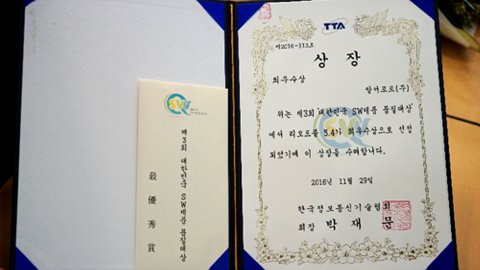 SW
제3회 대한민국 SW제품 품질대상
最優秀賞
TTA
제2016-113호
상장
최우수상
알서포트(주)
위는 제3회 대한민국 SW제품 품질대상
에서 리모트뷰 5.4가 최우수상으로 선정
되었기에 이 상장을 수여합니다.
2016년 11월 29일
한국정보통신기술협회
회장 박재문